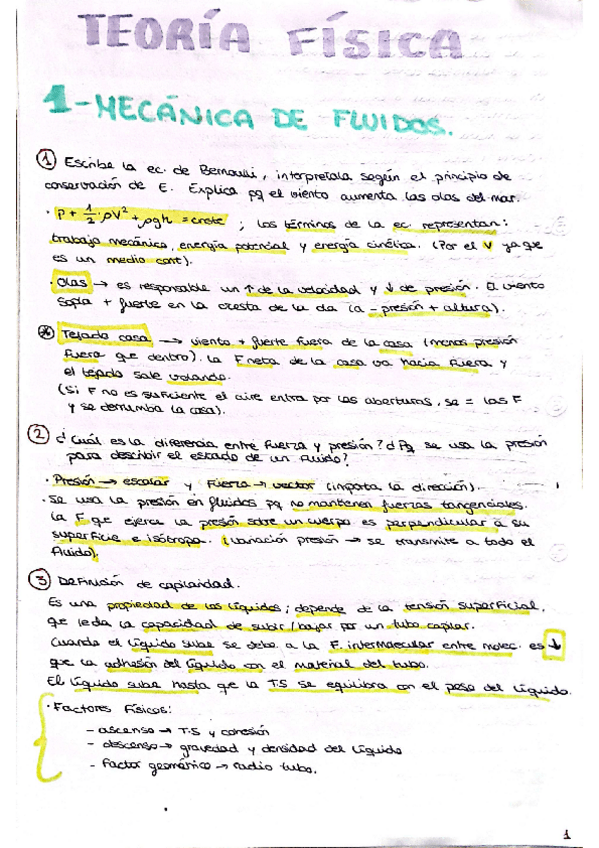 TEORÍA FÍSICA
1-MECÁNICA DE FLUIDOS.
① Escribe la ec. de Bernoulli, interpretala según el principio de
conservación de E. Explica pq el viento aumenta las olas del mar.
· P + 1/2 ρV² + ρgh = cnste ; los términos de la ec. representan:
trabajo mecánico, energía potencial y energía cinética. (Por el V ya que
es un medio cont).
· Olas → es responsable un ↑ de la velocidad y ↓ de presión. El viento
sopla + fuerte en la cresta de la ola (a - presión + altura).
⊛ Tejado casa → viento + fuerte fuera de la casa (menos presión
fuera que dentro). La F neta de la casa va hacia fuera y
el tejado sale volando.
(Si F no es suficiente el aire entra por las aberturas, se = las F
y se derrumba la casa).
② ¿Cuál es la diferencia entre fuerza y presión? ¿Pq se usa la presión
para describir el estado de un fluido?
· Presión → escalar y Fuerza → vector (importa la dirección).
· Se usa la presión en fluidos pq no mantienen fuerzas tangenciales.
La F que ejerce la presión sobre un cuerpo es perpendicular a su
superficie e isótropa. (variación presión → se transmite a todo el
fluido).
③ Definición de capilaridad.
Es una propiedad de los líquidos; depende de la tensión superficial,
que le da la capacidad de subir/bajar por un tubo capilar.
Cuando el líquido sube se debe a la F. intermolecular entre molec. es ↓
que la adhesión del líquido con el material del tubo.
El líquido sube hasta que la T.S se equilibra con el peso del líquido.
· Factores Físicos:
- ascenso → T.S y cohesión
- descenso → gravedad y densidad del líquido
- factor geométrico → radio tubo.
1